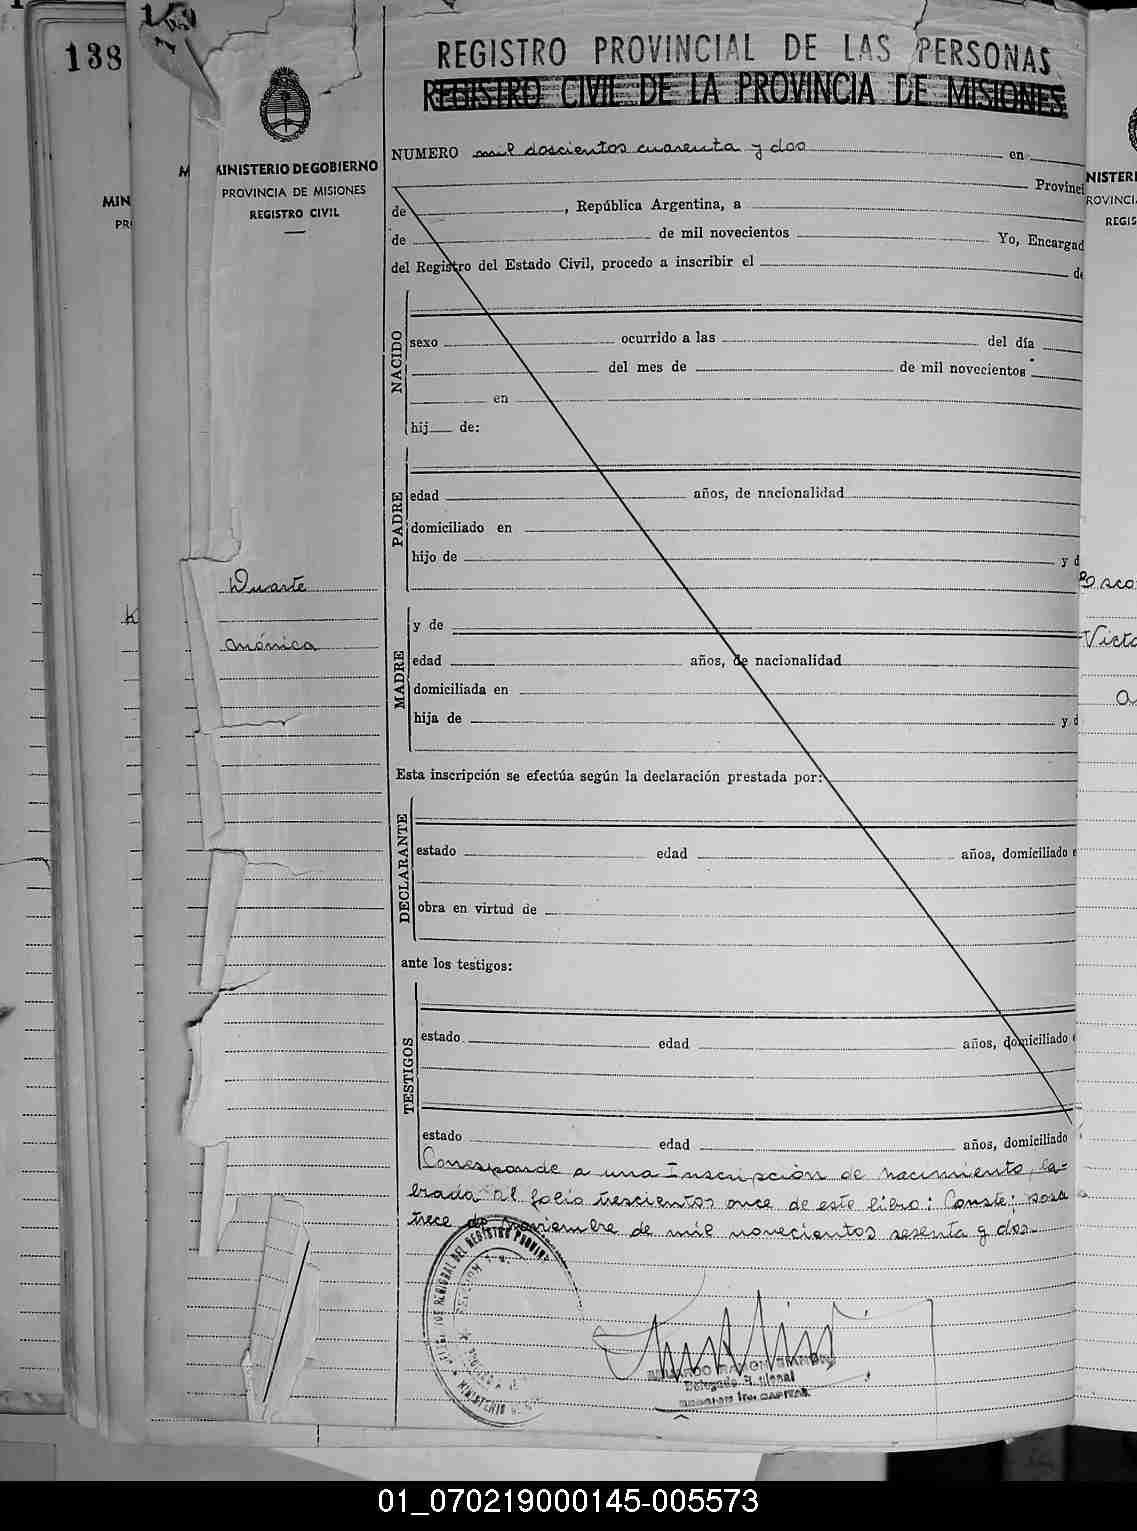 138
REGISTRO PROVINCIAL DE LAS PERSONAS
REGISTRO CIVIL DE LA PROVINCIA DE MISIONES
MINISTERIO DE GOBIERNO
PROVINCIA DE MISIONES
REGISTRO CIVIL
NUMERO mil doscientos cuarenta y dos en
Provinci
de , República Argentina, a
de de mil novecientos Yo, Encargad
del Registro del Estado Civil, procedo a inscribir el de
NACIDO
sexo ocurrido a las del día
del mes de de mil novecientos
en
hij de:
PADRE
edad años, de nacionalidad
domiciliado en
hijo de y d
Duarte
Mónica
MADRE
y de
edad años, de nacionalidad
domiciliada en
hija de y d
Esta inscripción se efectúa según la declaración prestada por:
DECLARANTE
estado edad años, domiciliado e
obra en virtud de
ante los testigos:
TESTIGOS
estado edad años, domiciliado e
estado edad años, domiciliado
Corresponde a una Inscripción de nacimiento, la-
brada al folio trescientos once de este libro; Conste;
trece de noviembre de mil novecientos sesenta y dos.
EDUARDO RAMON
Delegado Regional
MIN
PR
NISTERI
ROVINCI
REGIS
Esco
Victo
a
01_070219000145-005573